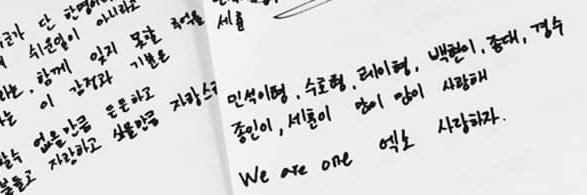 단
쉬운일이 아니라고
함께 잊지 못할 추억을
이 감정과 기분은
없을만큼 든든하고
자랑하고 싶을만큼
민석이형, 수호형, 레이형, 백현이, 종대, 경수
종인이, 세훈이 많이 많이 사랑해
We are one 엑소 사랑하자.